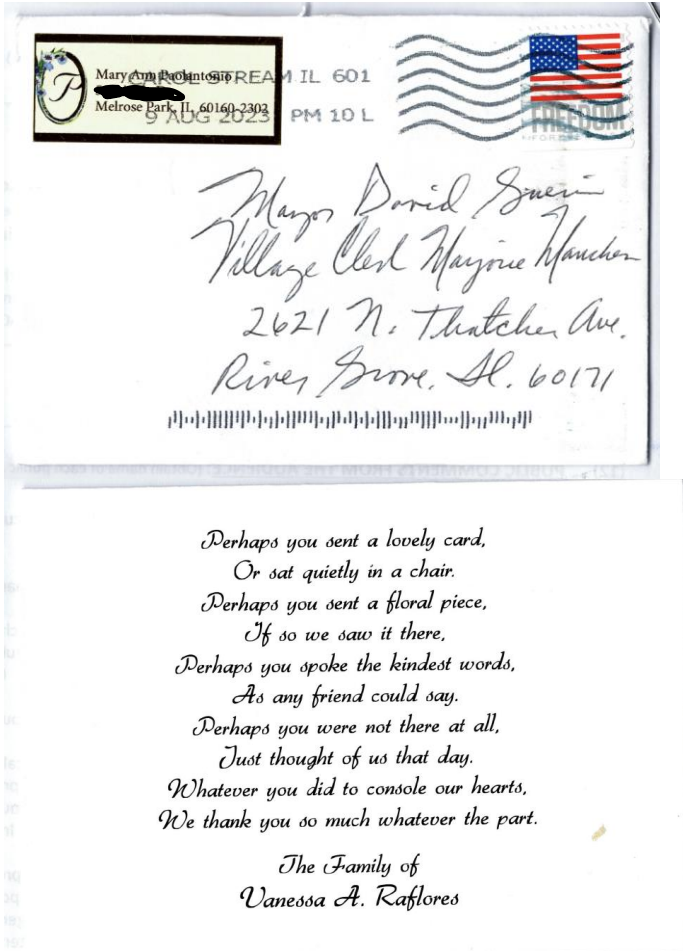 P
Mary Ann Paolantonio
Melrose Park, IL 60160-2302
CAROL STREAM IL 601
9 AUG 2023 PM 10 L
FREEDOM
FOREVER
Mayor David Guerin
Village Clerk Marjorie Manchen
2621 N. Thatcher Ave.
River Grove, Il. 60171
PUBLIC COMMENTS FROM THE AUDIENCE
Perhaps you sent a lovely card,
Or sat quietly in a chair.
Perhaps you sent a floral piece,
If so we saw it there,
Perhaps you spoke the kindest words,
As any friend could say.
Perhaps you were not there at all,
Just thought of us that day.
Whatever you did to console our hearts,
We thank you so much whatever the part.
The Family of
Vanessa A. Raflores